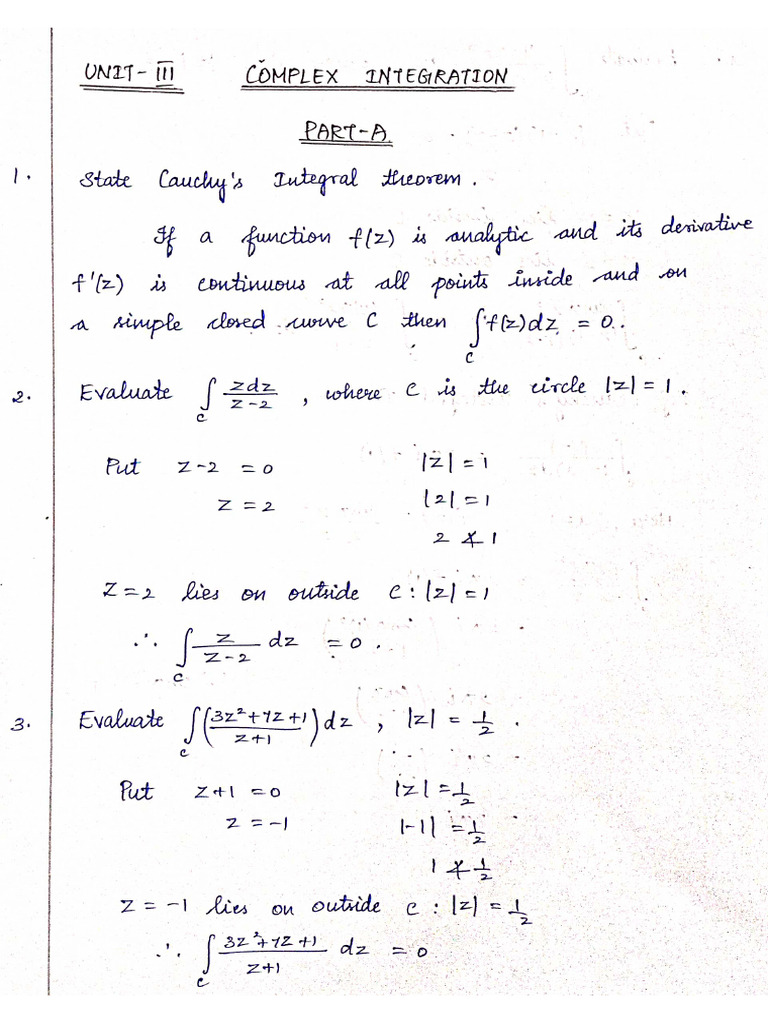 UNIT-III COMPLEX INTEGRATION
PART-A
1. State Cauchy's Integral theorem.
If a function f(z) is analytic and its derivative
f'(z) is continuous at all points inside and on
a simple closed curve C then ∫_C f(z)dz = 0.
2. Evaluate ∫_C zdz/(z-2), where C is the circle |z|=1.
Put z-2 = 0 |z| = 1
z = 2 |2| = 1
2 ≮ 1
z=2 lies on outside C : |z| = 1
∴ ∫_C z/(z-2) dz = 0.
3. Evaluate ∫_C ((3z²+7z+1)/(z+1)) dz, |z| = 1/2.
Put z+1 = 0 |z| = 1/2
z = -1 |-1| = 1/2
1 ≮ 1/2
z = -1 lies on outside C : |z| = 1/2
∴ ∫_C (3z²+7z+1)/(z+1) dz = 0